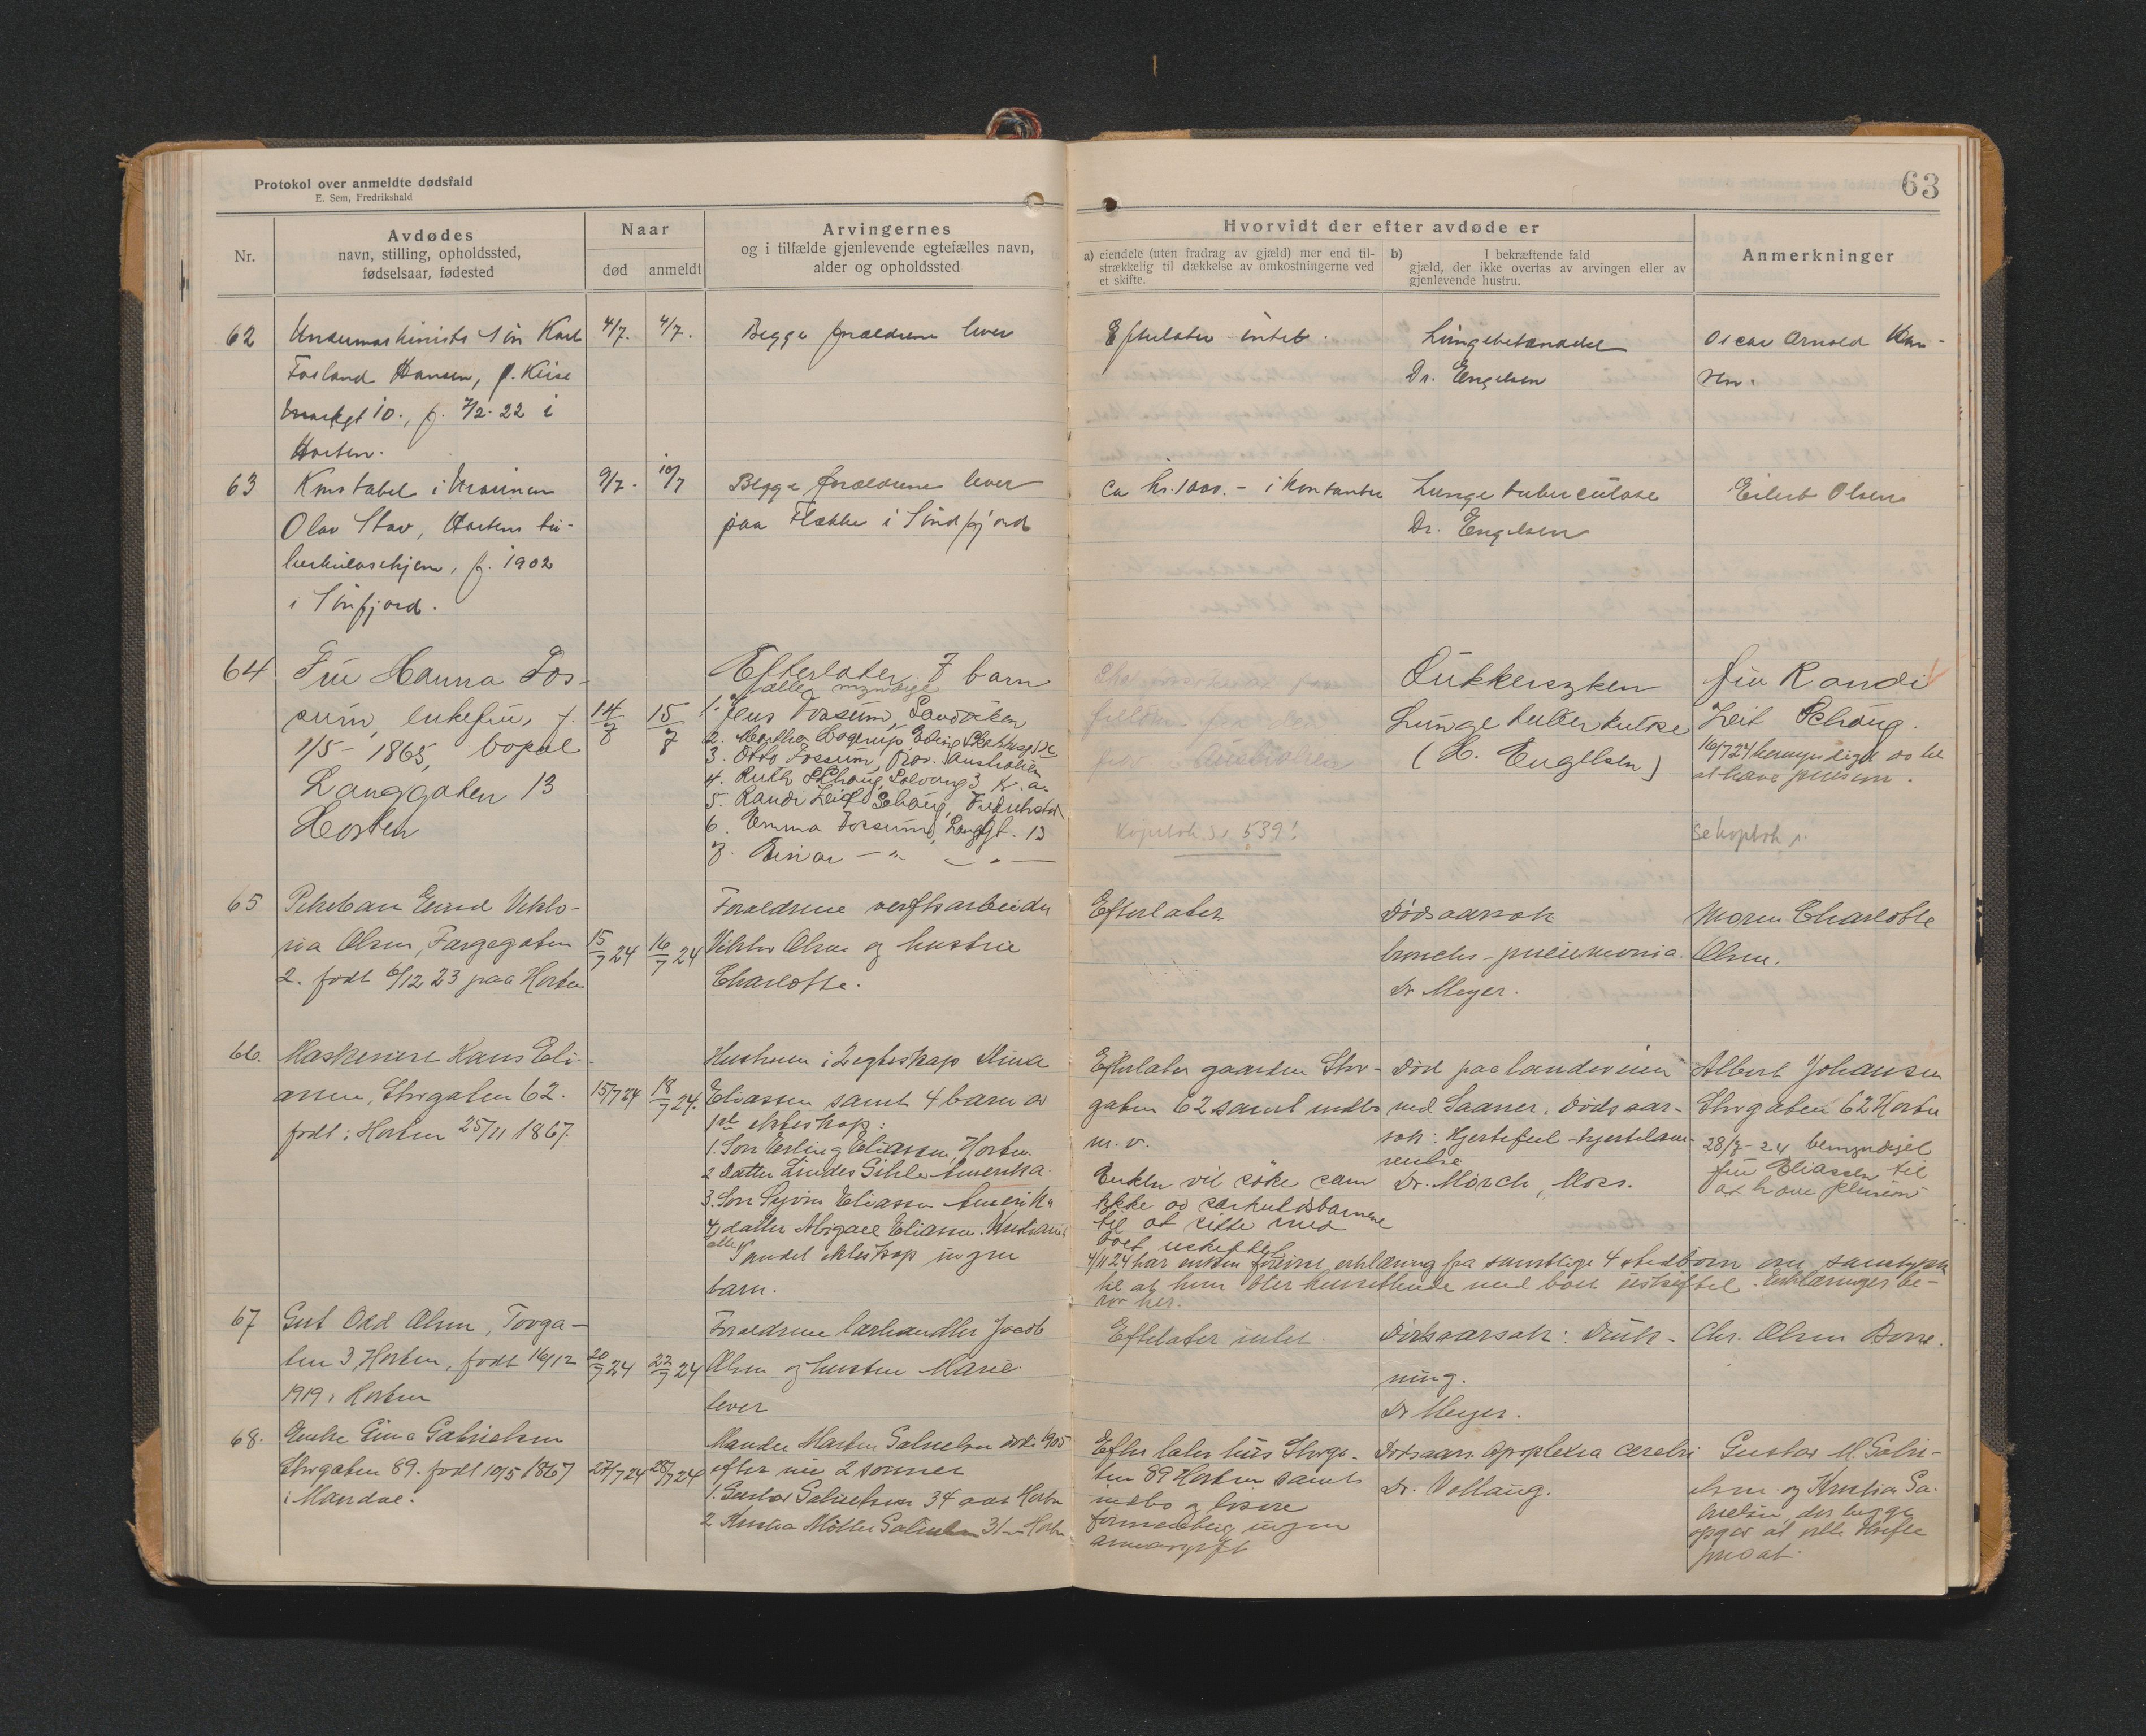 Protokol over anmeldte dødsfald
E. Sem, Fredrikshald
63
Nr.
Avdødes
navn, stilling, opholdssted,
fødselsaar, fødested
Naar
død
anmeldt
Arvingernes
og i tilfælde gjenlevende egtefælles navn,
alder og opholdssted
Hvorvidt der efter avdøde er
a) eiendele (uten fradrag av gjæld) mer end til-
strækkelig til dækkelse av omkostningerne ved
et skifte.
b) I bekræftende fald
gjæld, der ikke overtas av arvingen eller av
gjenlevende hustru.
Anmerkninger
62
Undermaskinists søn Karl
Fosland Hansen, f.
10., f. 7/2. 22 i
Horten.
4/7.
4/7.
Begge forældrene lever
Efterlater intet.
Lungebetændelse
Dr. Engelsen
Oscar Arnold Han-
sen.
63
Konstabel i Marinen
Olav Stav, Hortens tu-
berkulosehjem, f. 1902
i Sönfjord.
9/7.
10/7
Begge forældrene lever
paa Flekke i Söndfjord
Ca kr. 1000.- i kontanter
Lungetuberculose
Dr. Engelsen
Eilert Olsen
64
Fru Hanna Fos-
sum, enkefru, f.
1/5 - 1865, bopæl
Langgaten 13
Horten
14/7
15/7
Efterlater 7 barn
alle myndige
1. Jens Fossum, Sandviken
2. Marthe
3. Otto Fossum, Australien
4. Ruth Schaug, Solvang 3, K.a.
5. Randi Leif Schaug, Fredrikstad
6. Emma Fossum, Langgt. 13
7. Einar - " - " -
Australien
539!
Sukkersyken
Lungetuberkulose
(H. Engelsen)
fru Randi
Leif Schaug.
16/7 24 bemyndiget av til
at hæve pension.
Se kopibok
65
Pikebarn Gerd Vikto-
ria Olsen, Fargegaten
2. født 6/12 23 paa Horten
15/7 24
16/7 24
Forældrene verftsarbeider
Viktor Olsen og hustru
Charlotte.
Efterlater
Dödsaarsak
broncho-pneumonia.
Dr Meyer.
Moren Charlotte
Olsen.
66.
Maskinist Hans Eli-
assen, Storgaten 62.
født i Horten 25/11 1867.
15/7 24
18/7 24.
Hustruen i 2 egteskap Mina
Eliassen samt 4 barn av
1ste ekteskap:
1. Søn Erling Eliassen, Horten.
2 Datter Lindes Sihle Amerika.
3. Søn Eliassen Amerika
4. datter Abigael Eliassen. Kristiania
alle
I andet ekteskap ingen
barn.
Efterlater gaarden Stor-
gaten 62 samt indbo
m. v.
Enken vil søke sam
tykke av særkuldsbarnene
til at sitte med
boet uskiftet
4/11 24 har enken forevist erklæring fra samtlige 4 stedbörn om samtykke
til at hun blir hensittende med boet uskiftet. Erklæringer be-
ror her.
Död paa landeveien
ved Saaner. Dödsaar-
sak: Hjertefeil - hjertelam-
melse
Dr. Mörch, Moss.
Albert Johansen
Storgaten 62 Horten
28/7-24 bemyndiget
fru Eliassen til
at hæve pension
67
Gut Odd Olsen, Torvga-
ten 3 Horten, født 16/12
1919 i Horten
20/7 24
22/7 24
Forældrene Jacob
Olsen og hustru Marie
lever
Efterlater intet.
Dödsaarsak: Druk-
ning.
Dr Meyer.
Chr. Olsen Borre.
68.
Enke Gina Gabrielsen
Storgaten 89. født 10/5 1867
i Mandal.
27/7 24
28/7 24
Manden Marten Gabrielsen död i 1905
efter sig 2 sönner
1. Gustav Gabrielsen 34 aar Horten
2 Kristian Möller Gabrielsen 31 " Horten
Efterlater hus Storga-
ten 89 Horten samt
indbo og lösöre
formentlig ingen
arveavgift
Dödsaars. Apoplexia cerebri
Dr. Vollaug.
Gustav M. Gabri-
elsen og Kristian Ga-
brielsen, der begge
opgav at ville skifte
privat.